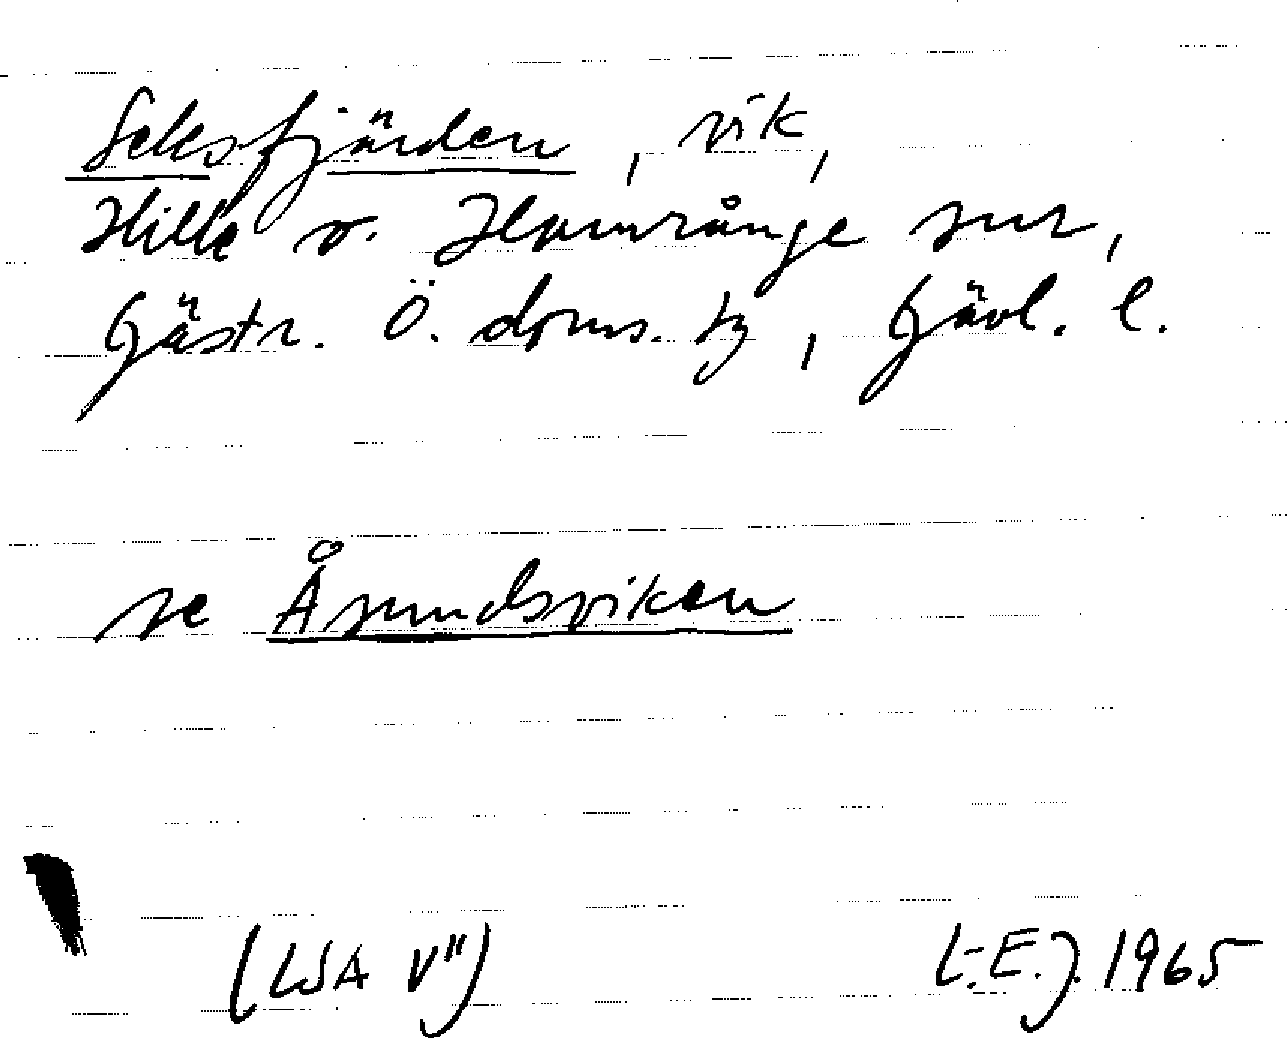 Seksfjärden, vik,
Hille o. Hamrånge snr,
Gästr. Ö. doms. tg, Gävl. l.
se Åsundsviken
(LSA V")
L-E.J. 1965